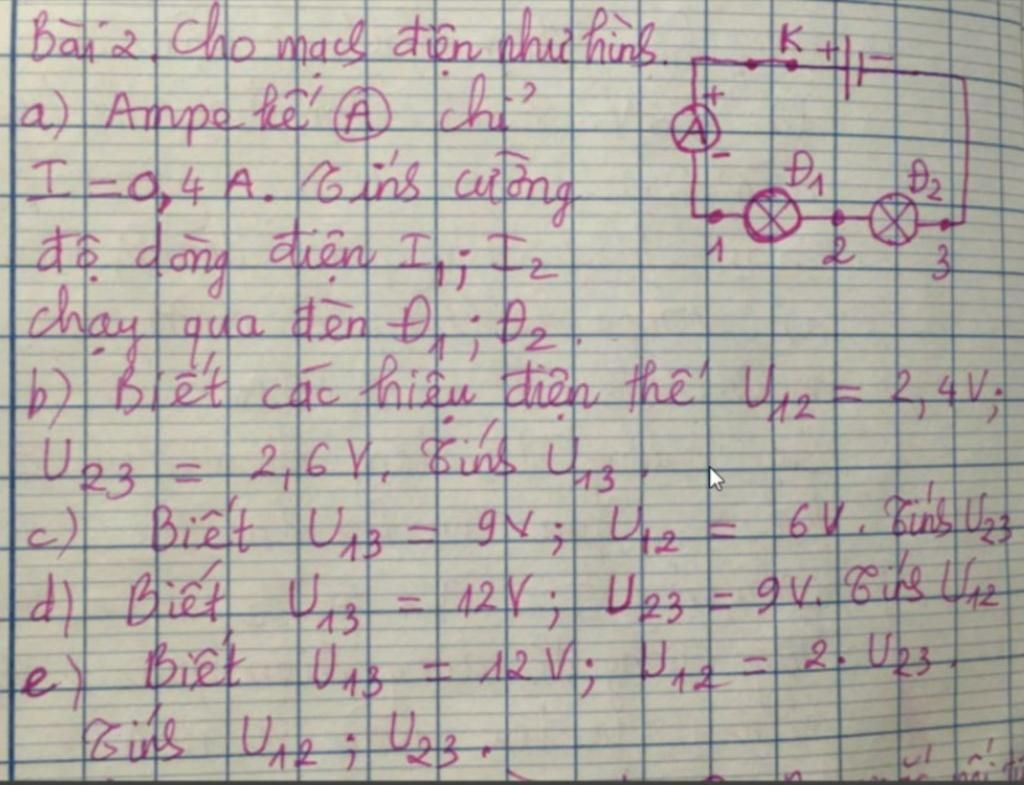 Bài 2. Cho mạch điện như hình.
K + -
a) Ampe kế (A) chỉ
+
A
-
I = 0,4 A. Tính cường
Đ1 Đ2
độ dòng điện I1; I2
1 2 3
chạy qua đèn Đ1; Đ2.
b) Biết các hiệu điện thế U12 = 2,4V;
U23 = 2,6V. Tính U13.
c) Biết U13 = 9V; U12 = 6V. Tính U23
d) Biết U13 = 12V; U23 = 9V. Tính U12
e) Biết U13 = 12V; U12 = 2. U23.
Tính U12; U23.